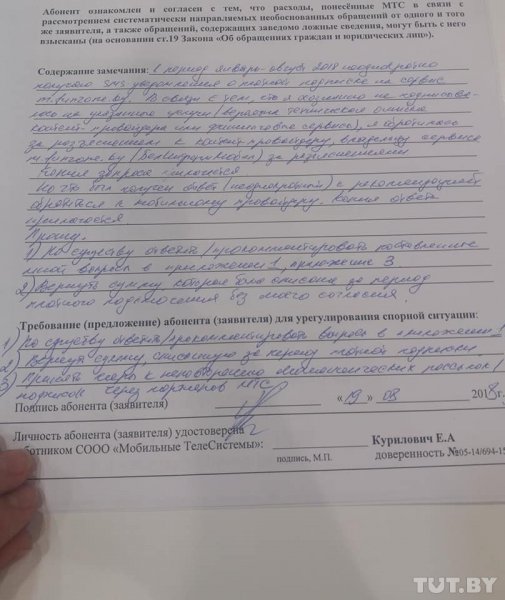 Абонент ознакомлен и согласен с тем, что расходы, понесённые МТС в связи с
рассмотрением систематически направляемых необоснованных обращений от одного и того
же заявителя, а также обращений, содержащих заведомо ложные сведения, могут быть с него
взысканы (на основании ст.19 Закона «Об обращениях граждан и юридических лиц»).
Содержание замечания: в период январь-август 2018 неоднократно
получаю SMS уведомления о платной подписке на сервис
m.funzone.by. В связи с тем, что я
на указанные услуги (вероятно техническая ошибка
контент-провайдера или фишингового сервиса), я обратилась
за разъяснением к контент-провайдеру, владельцу сервиса
m.funzone.by за разъяснениями
Копия запроса прилагается
На что был получен ответ (неоднократный) с рекомендацией
обратиться к мобильному провайдеру. Копия ответа
прилагается
Прошу:
1) По существу ответить/прокомментировать поставленные
мной вопросы в приложении 1, приложение 3
2) Вернуть сумму которая была списана за период
платного подключения без моего согласия.
Требование (предложение) абонента (заявителя) для урегулирования спорной ситуации:
1) По существу ответить/прокомментировать вопросы в приложении 1
2) Вернуть сумму, списанную за период платной подписки
3) Принять меры к мошеннических рассылок/
подписок через партнеров МТС
Подпись абонента (заявителя) «19» 08 2018 г.
Личность абонента (заявителя) удостоверена
работником СООО «Мобильные ТелеСистемы»: Курилович Е.А
подпись, М.П. доверенность №05-14/694-15
TUT.BY